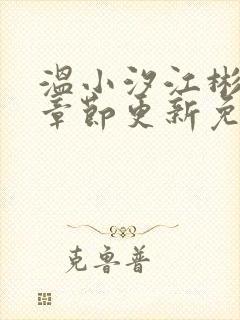 温小汐江彬
章节更新免
克鲁普